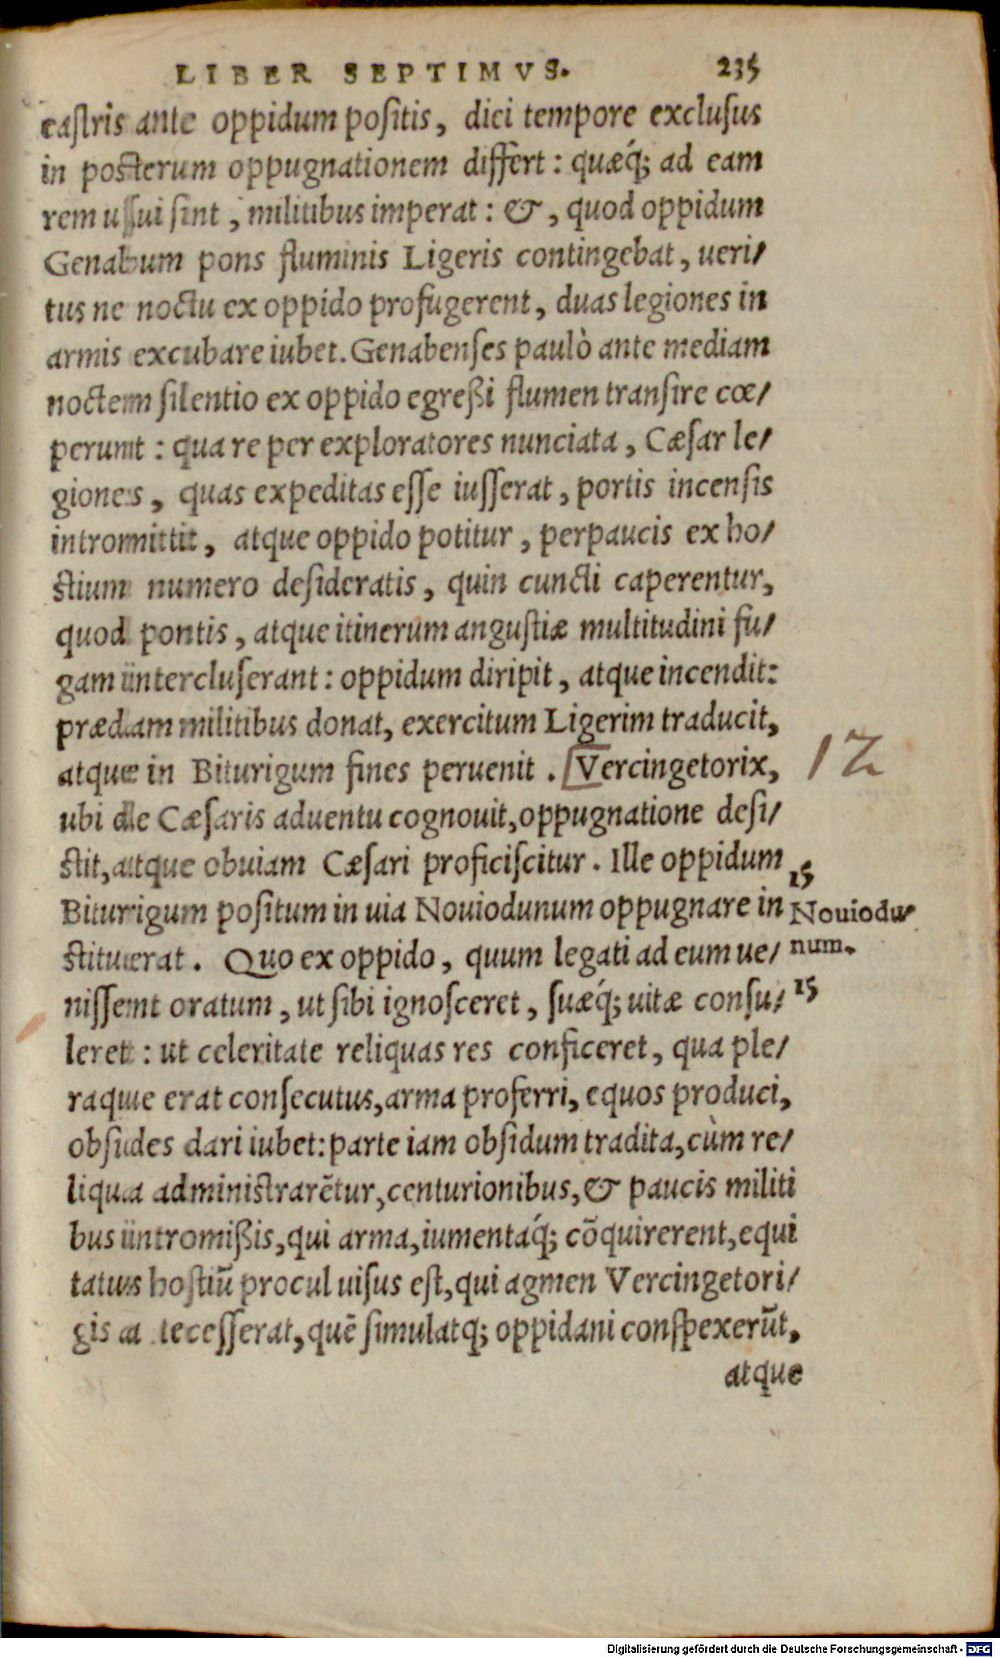 LIBER SEPTIMVS. 235
castris ante oppidum positis, diei tempore exclusus
in posterum oppugnationem differt: quæq́; ad eam
rem usui sint, militibus imperat: &, quod oppidum
Genabum pons fluminis Ligeris contingebat, ueri/
tus ne noctu ex oppido profugerent, duas legiones in
armis excubare iubet. Genabenses paulò ante mediam
noctem silentio ex oppido egreßi flumen transire cœ/
perunt: qua re per exploratores nunciata, Cæsar le/
giones, quas expeditas esse iusserat, portis incensis
intromittit, atque oppido potitur, perpaucis ex ho/
stium numero desideratis, quin cuncti caperentur,
quod pontis, atque itinerum angustiæ multitudini fu/
gam intercluserant: oppidum diripit, atque incendit:
prædam militibus donat, exercitum Ligerim traducit,
atque in Biturigum fines peruenit. [Vercingetorix, 12
ubi de Cæsaris aduentu cognouit, oppugnatione desi/
stit, atque obuiam Cæsari proficiscitur. Ille oppidum 15
Biturigum positum in uia Nouiodunum oppugnare in Nouiodu/
stituerat. Quo ex oppido, quum legati ad eum ue/ num.
nissent oratum, ut sibi ignosceret, suæq́; uitæ consu/ 15
leret: ut celeritate reliquas res conficeret, qua ple/
raque erat consecutus, arma proferri, equos produci,
obsides dari iubet: parte iam obsidum tradita, cùm re/
liqua administrarẽtur, centurionibus, & paucis militi
bus intromißis, qui arma, iumentaq́; cõquirerent, equi
tatus hostiũ procul uisus est, qui agmen Vercingetori/
gis a tecesserat, quẽ simulatq; oppidani conspexerũt,
atque
Digitalisierung gefördert durch die Deutsche Forschungsgemeinschaft - DFG